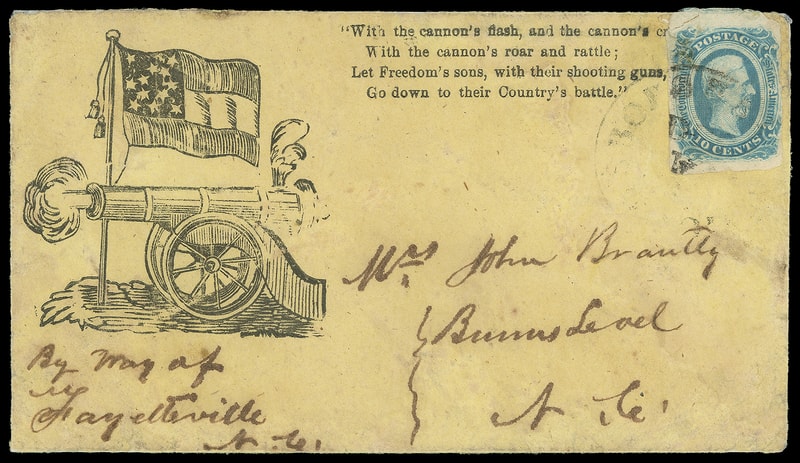 "With the cannon's flash, and the cannon's
With the cannon's roar and rattle;
Let Freedom's sons, with their shooting guns,
Go down to their Country's battle."
POSTAGE
10 CENTS
Mrs John Brantly
Bunns Level
N. C.
By Way of
Fayetteville
N. C.